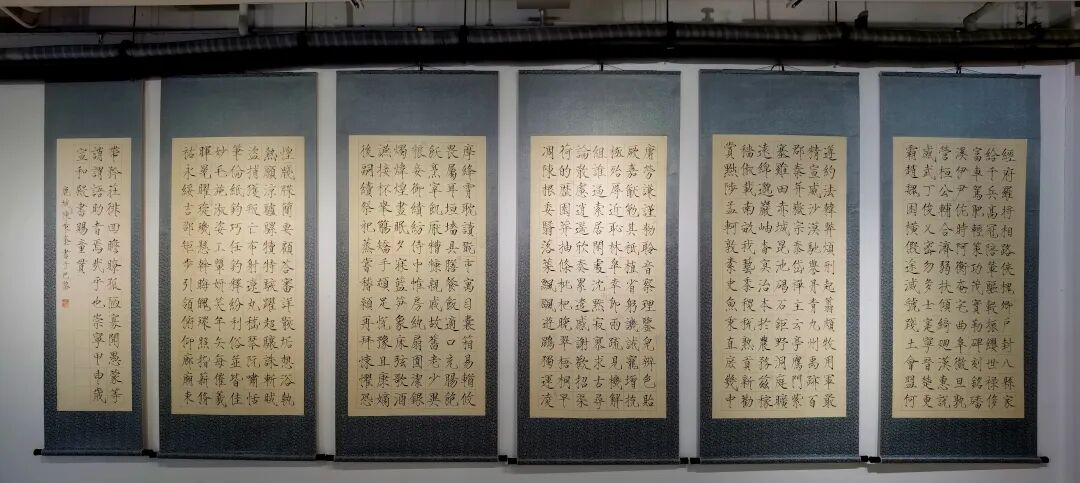 經府羅將相路俠槐卿戶封八縣家
給千兵高冠陪輦驅轂振纓世祿侈
富車駕肥輕策功茂實勒碑刻銘磻
溪伊尹佐時阿衡奄宅曲阜微旦孰
營桓公輔合濟弱扶傾綺迴漢惠說
感武丁俊乂密勿多士寔寧晉楚更
霸趙魏困橫假途滅虢踐土會盟何
遵約法韓弊煩刑起翦頗牧用軍最
精宣威沙漠馳譽丹青九州禹跡百
郡秦并嶽宗泰岱禪主云亭雁門紫
塞雞田赤城昆池碣石鉅野洞庭曠
遠綿邈巖岫杳冥治本於農務茲稼
穡俶載南畝我藝黍稷稅熟貢新勸
賞黜陟孟軻敦素史魚秉直庶幾中
庸勞謙謹勑聆音察理鑒皃辨色貽
厥嘉猷勉其祗植省躬譏誡寵增抗
極殆辱近恥林皋幸即兩疏見機解
組誰逼索居閑處沉默寂寥求古尋
論散慮逍遙欣奏累遣慼謝歡招渠
荷的歷園莽抽條枇杷晚翠梧桐早
凋陳根委翳落葉飄颻遊鵾獨運凌
摩絳霄耽讀翫市寓目囊箱易輶攸
畏屬耳垣墻具膳餐飯適口充腸飽
飫烹宰飢厭糟糠親戚故舊老少異
糧妾御績紡侍巾帷房紈扇圓潔銀
燭煒煌晝眠夕寐藍笋象床弦歌酒
讌接杯舉觴矯手頓足悅豫且康嫡
後嗣續祭祀蒸嘗稽顙再拜悚懼恐
惶牋牒簡要顧答審詳骸垢想浴執
熱願涼驢騾犢特駭躍超驤誅斬賊
盜捕獲叛亡布射遼丸嵇琴阮嘯恬
筆倫紙鈞巧任釣釋紛利俗並皆佳
妙毛施淑姿工顰妍笑年矢每催羲
暉晃曜璇璣懸斡晦魄環照指薪脩
祜永綏吉邵矩步引領俯仰廊廟束
帶矜莊徘徊瞻眺孤陋寡聞愚蒙等
誚謂語助者焉哉乎也崇寧甲申歲
宣和殿書賜童貫